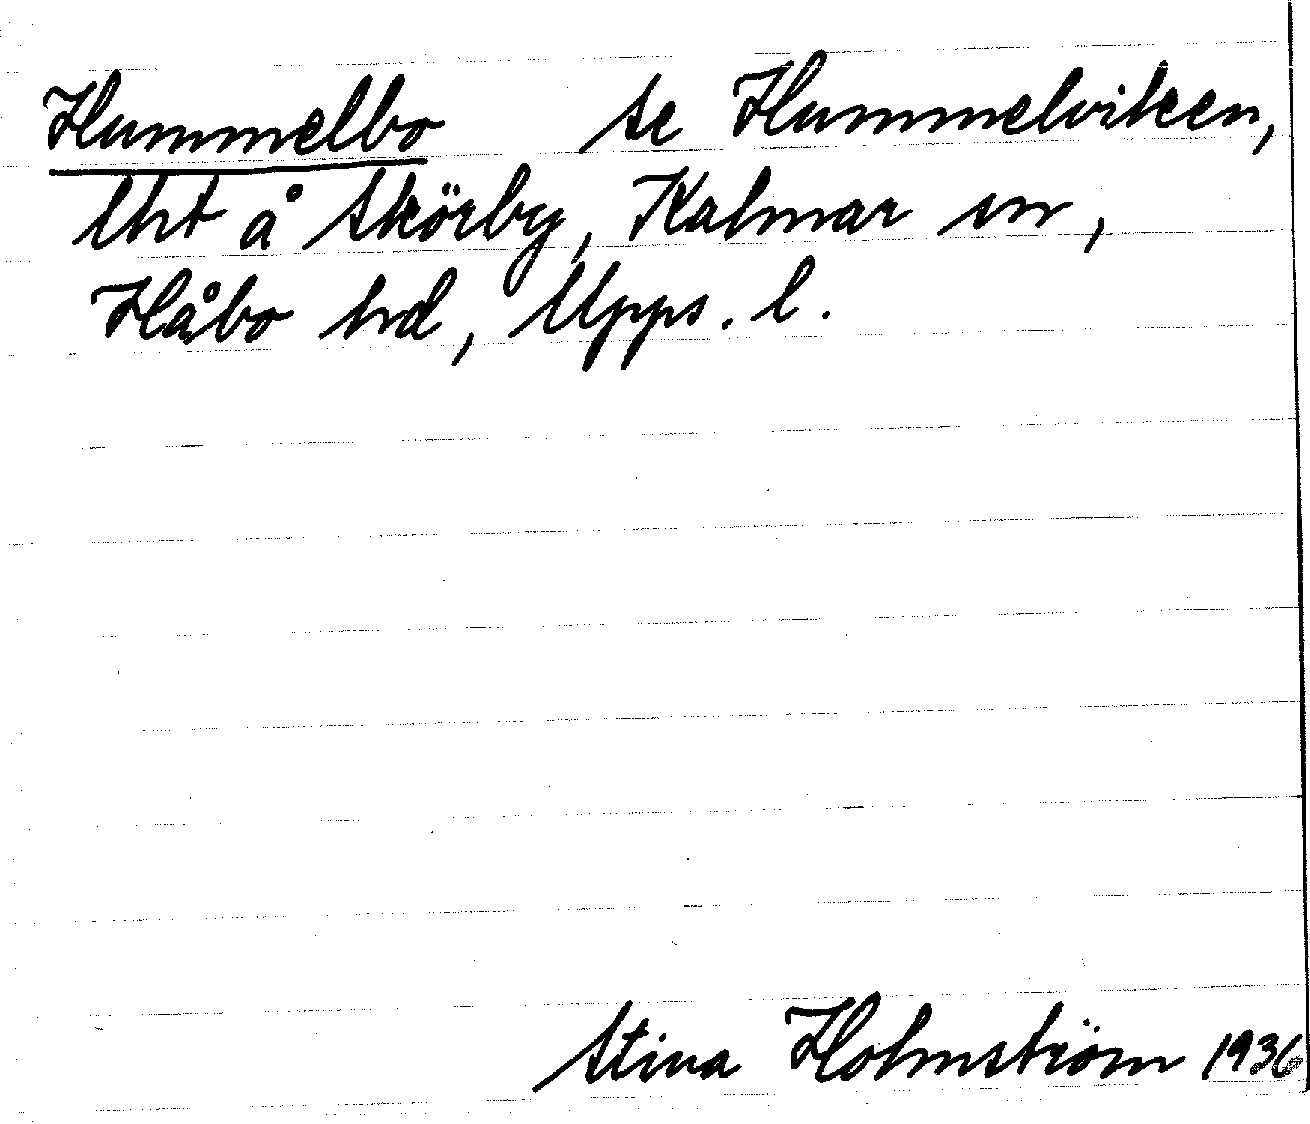 Hummelbo se Hummelviken,
lht å Skörby, Kalmar sn,
Håbo hd, Upps. l.
Stina Holmström 1936